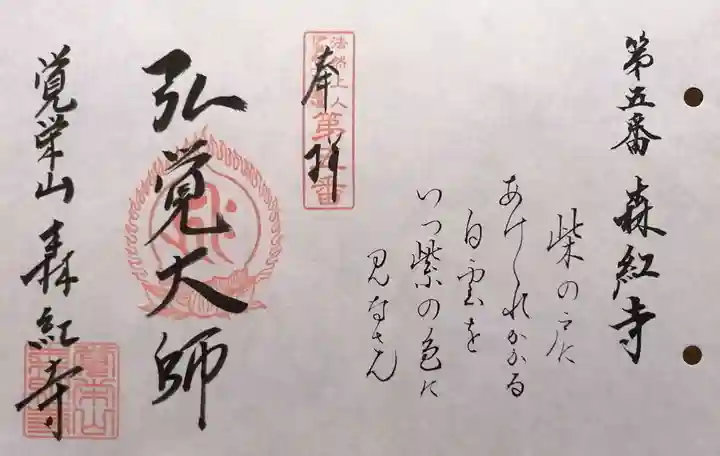 第五番 森紅寺
柴の戸に
あけくれかかる
白雲を
いつ紫の色に
見なさん
法然上人
第五番
奉拝
弘覚大師
覚栄山 森紅寺